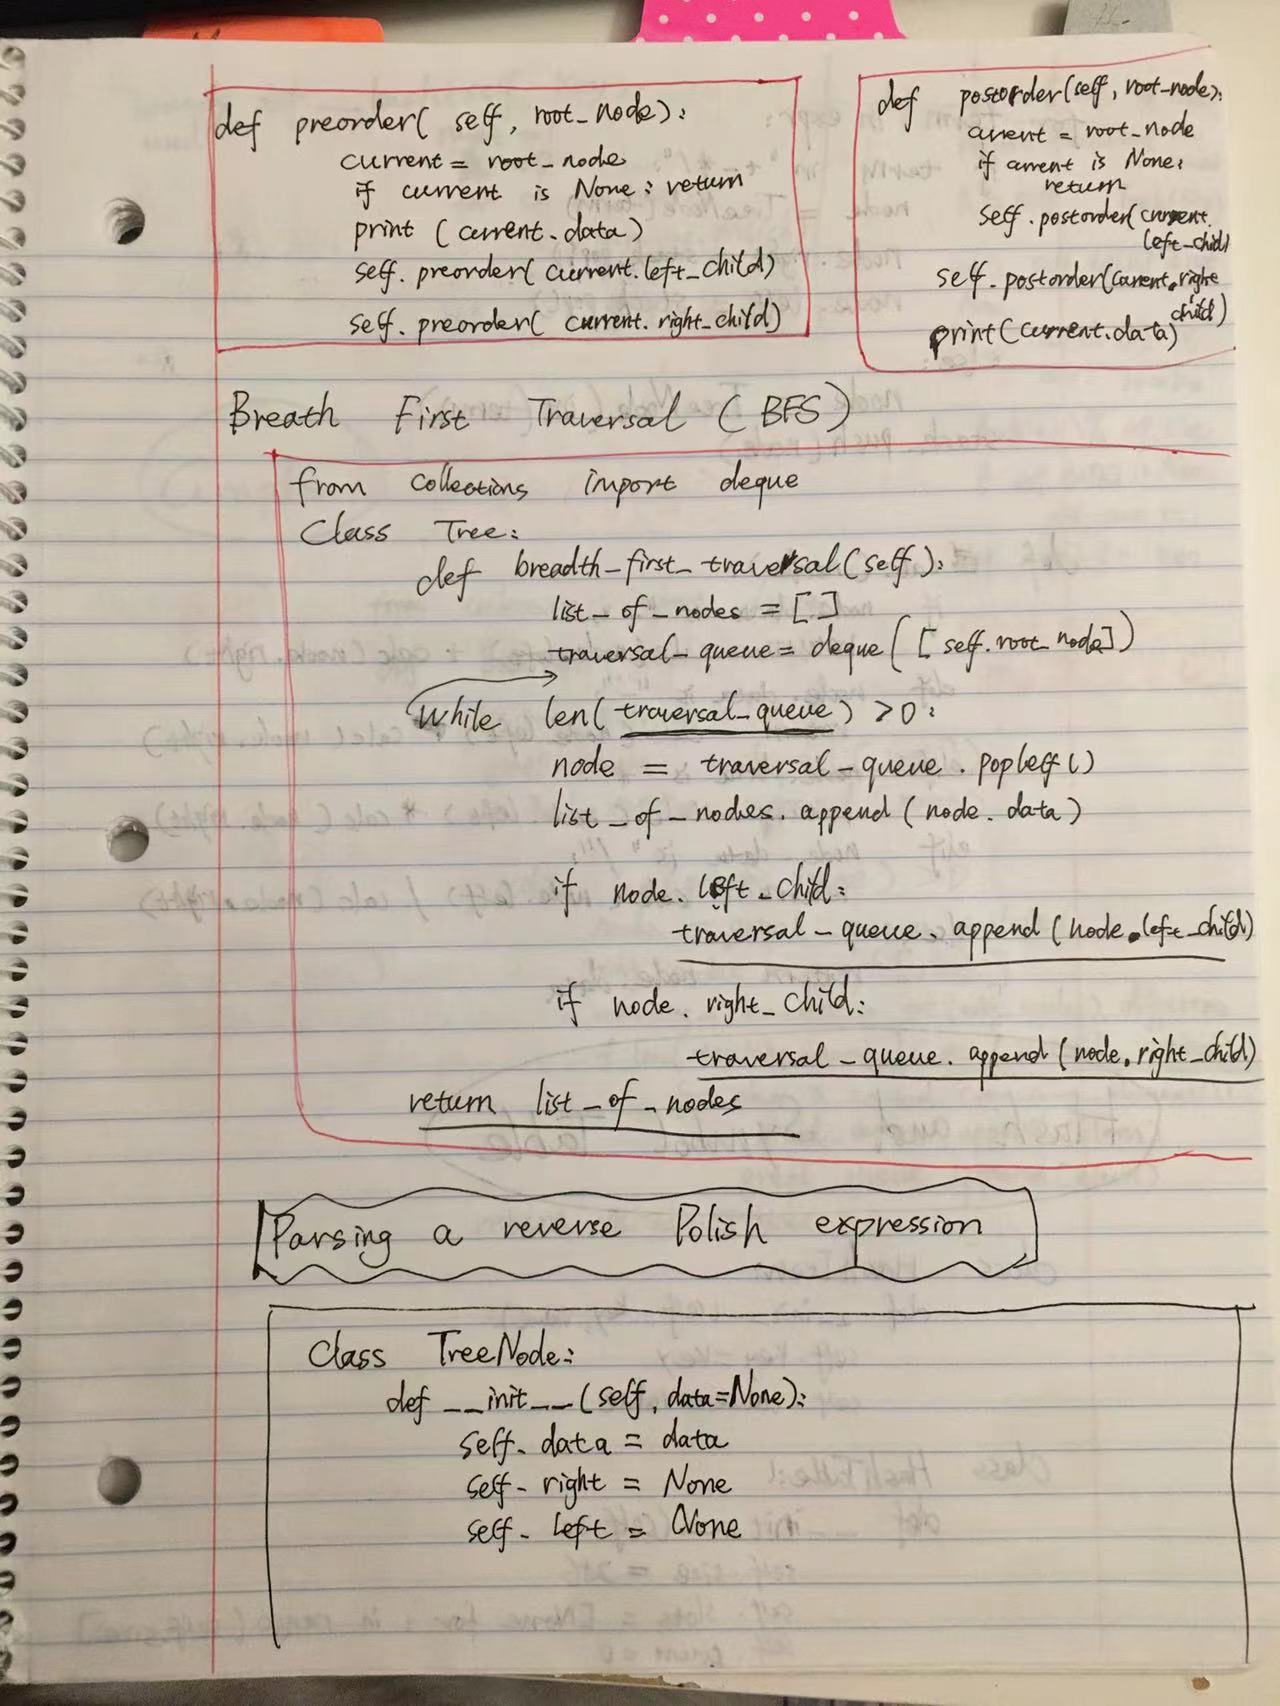 def preorder( self, root_node):
current = root_node
if current is None: return
print (current.data)
self. preorder( current.left_child)
self. preorder( current. right_child)
def postorder(self, root-node):
current = root_node
if current is None:
return
self. postorder( current.
left_child)
self. postorder( current. right
child)
print( current.data)
Breath First Traversal ( BFS )
from collections import deque
Class Tree:
def breadth_first_traversal(self):
list_of_nodes = [ ]
traversal_queue = deque( [ self.root_node] )
While len( traversal_queue) >0:
node = traversal_queue . popleft()
list_of_nodes. append ( node. data )
if node. left_child:
traversal_queue. append ( node.left_child)
if node. right_child:
traversal_queue. append ( node. right_child)
return list_of_nodes
Parsing a reverse Polish expression
Class TreeNode:
def __init__(self, data=None):
self. data = data
self. right = None
self. left = None